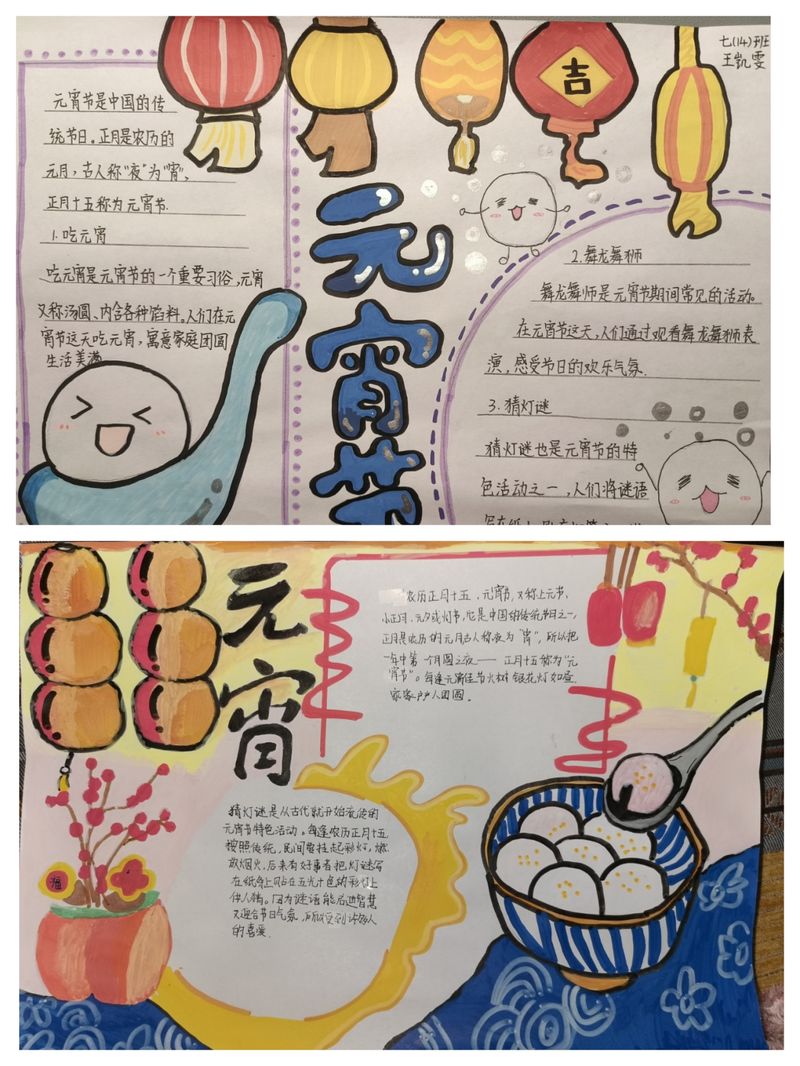 七(14)班
王凯雯
吉
元宵节
元宵节是中国的传
统节日。正月是农历的
元月，古人称"夜"为"宵"、
正月十五称为元宵节.
1.吃元宵
吃元宵是元宵节的一个重要习俗，元宵
又称汤圆、内含各种馅料。人们在元
宵节这天吃元宵，寓意家庭团圆
生活美满
2.舞龙舞狮
舞龙舞师是元宵节期间常见的活动。
在元宵节这天，人们通过观看舞龙舞狮表
演，感受节日的欢乐气氛.
3.猜灯谜
猜灯谜也是元宵节的特
色活动之一，人们将谜语
元宵
农历正月十五，元宵节，又称上元节，
小正月、元夕或灯节，它是中国的传统节日之一，
正月是农历的元月古人称夜为"宵"，所以把
一年中第一个月圆之夜——正月十五称为"元
宵节"。每逢元宵佳节火树银花灯如昼，
家家户户人团圆。
猜灯谜是从古代就开始流传的
元宵节特色活动。每逢农历正月十五
按照传统，民间都挂起彩灯，燃
放烟火，后来有好事者把灯谜写
在纸条上贴在五光十色的彩灯上
供人猜。因为谜语能启迪智慧
又迎合节日气氛，所以受到许多人
的喜爱.
福